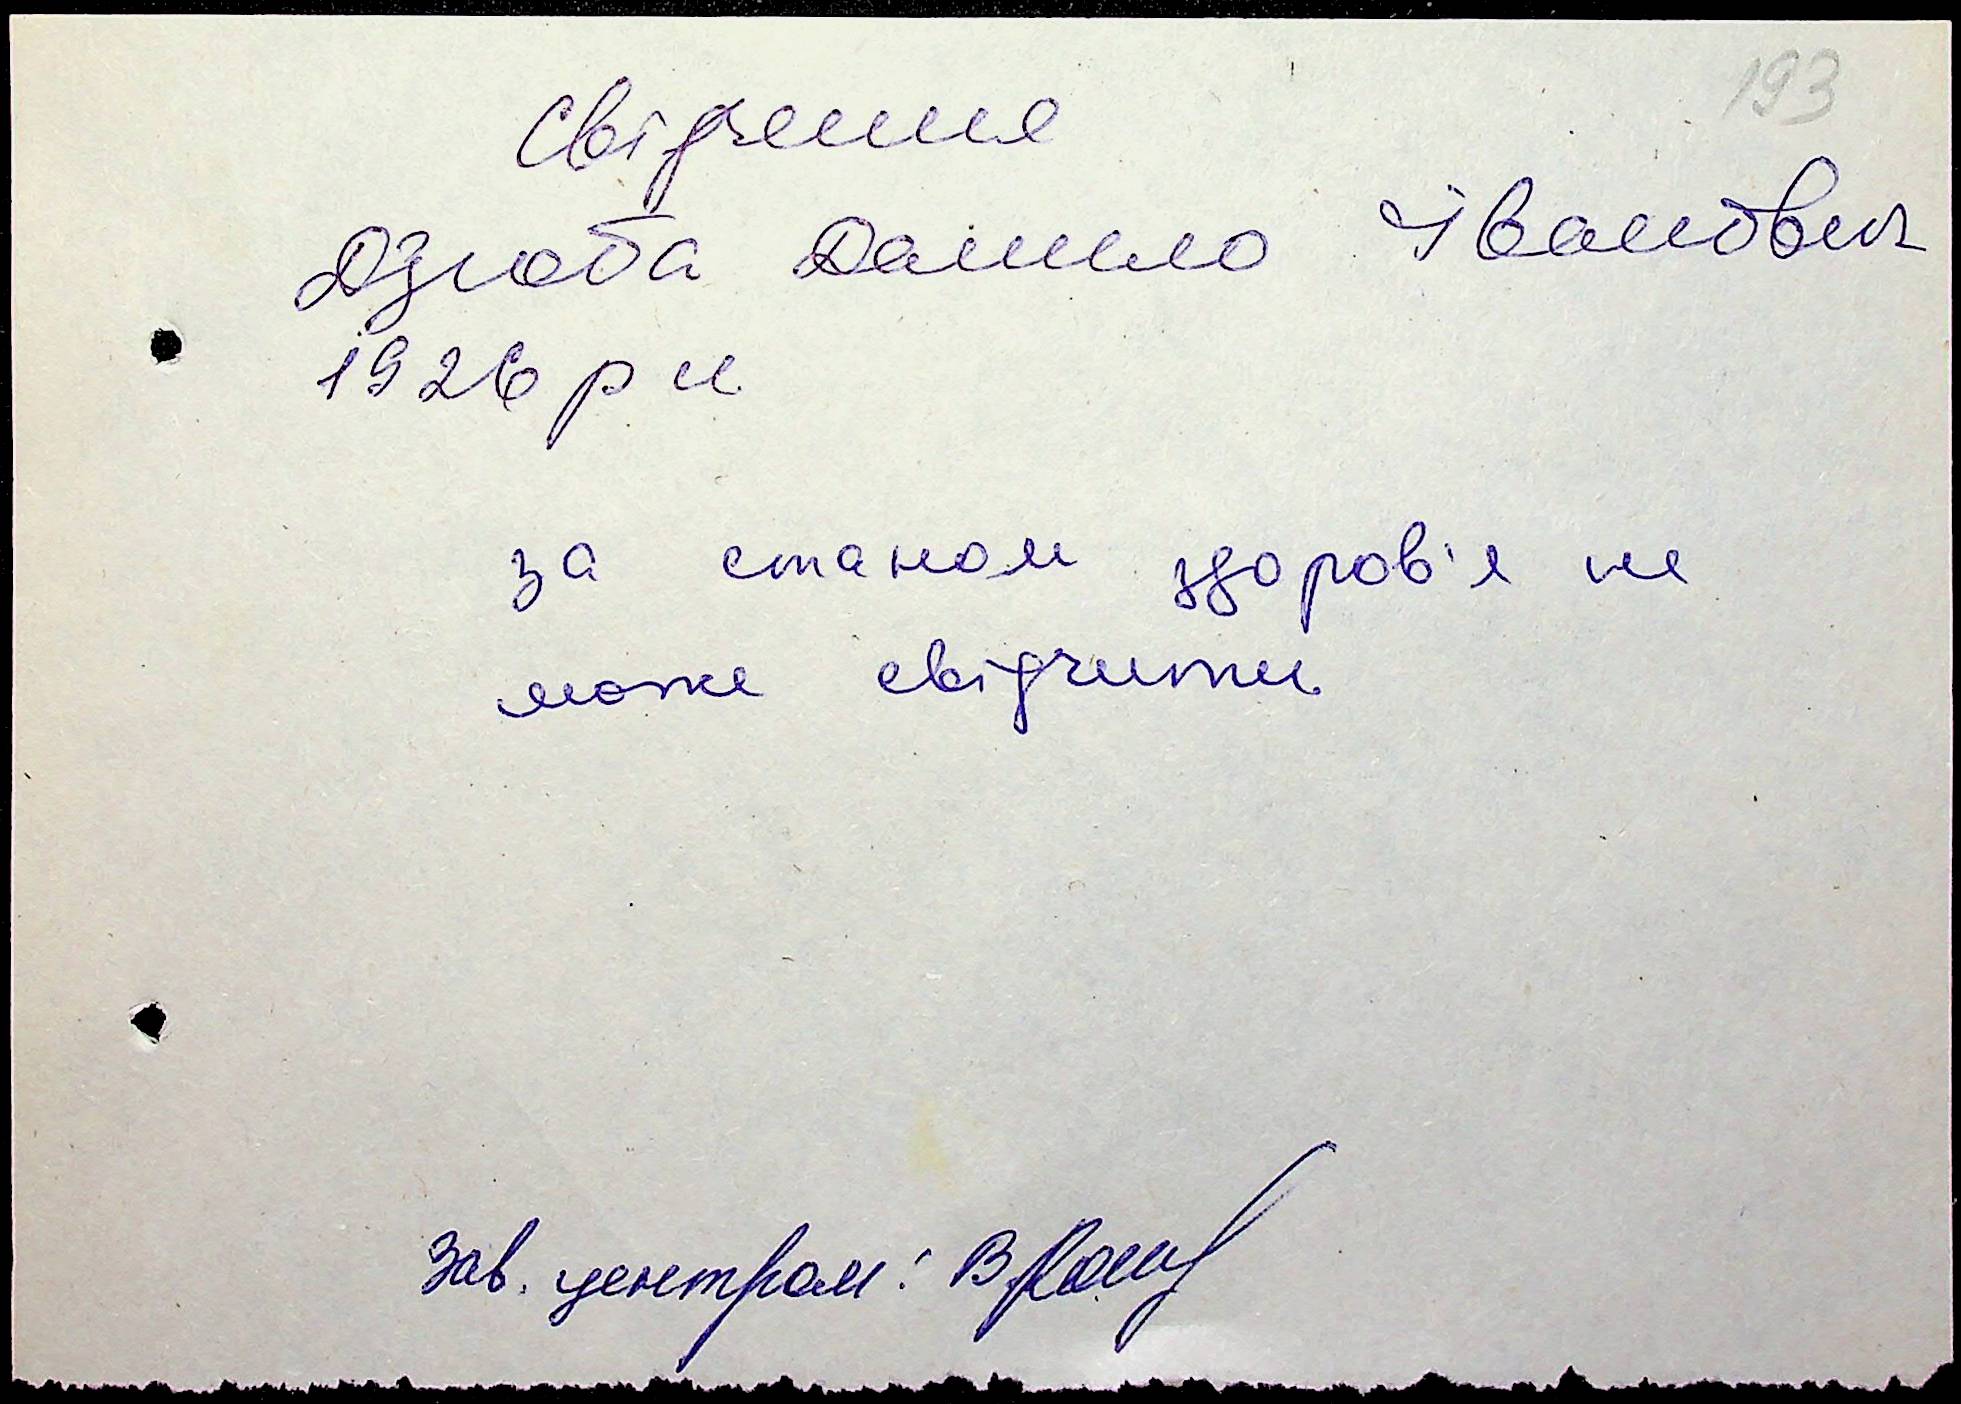 193
Свідчення
Дзюба Данило Іванович
1926 р н
за станом здоров'я не
може свідчити
Зав. центром: